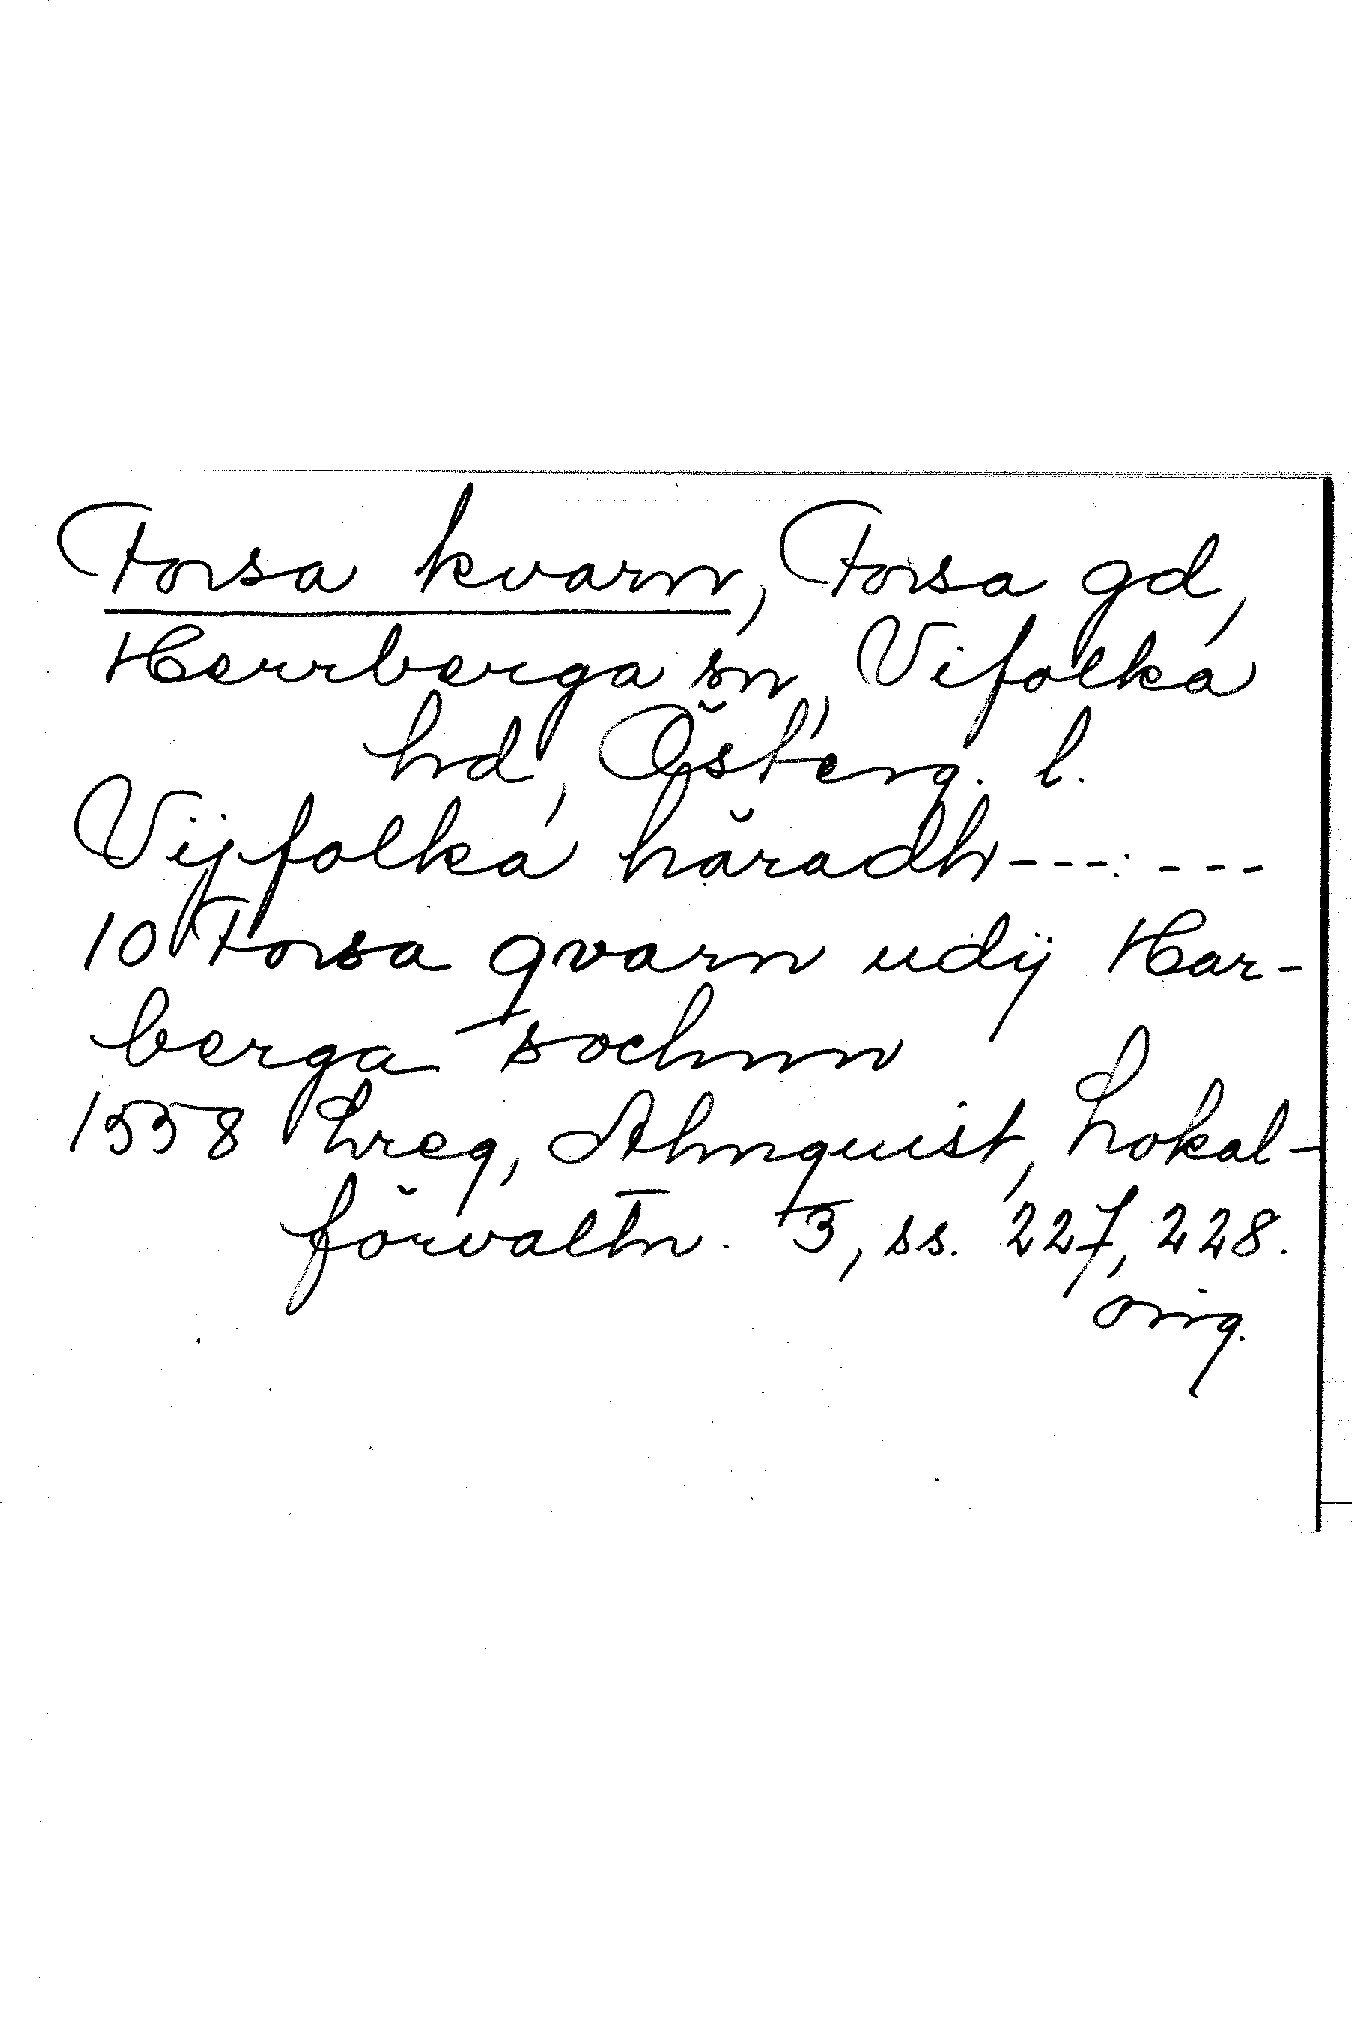 Forsa kvarn, Forsa gd,
Herrberga sn, Vifolka
hd, Österg. l.
Vijfolka häradh--- ---
10 Forsa qvarn udij Har-
berga sochnn
1558 Lreg, Almquist, Lokal-
förvaltn. 3, ss. 227, 228.
orig.